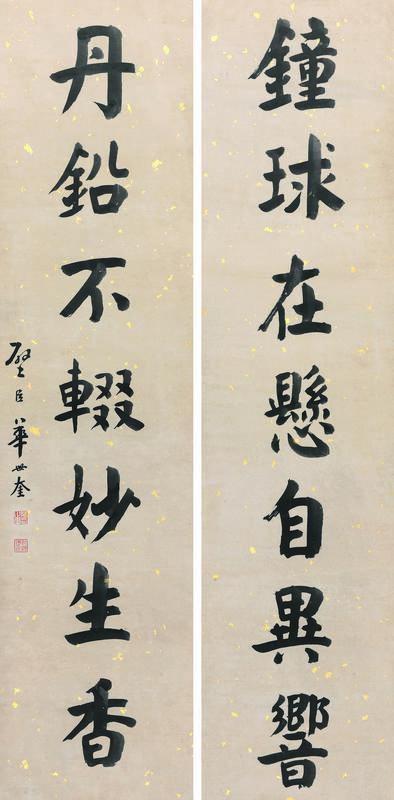 鐘球在懸自異響
丹鉛不輟妙生香
璧臣華世奎